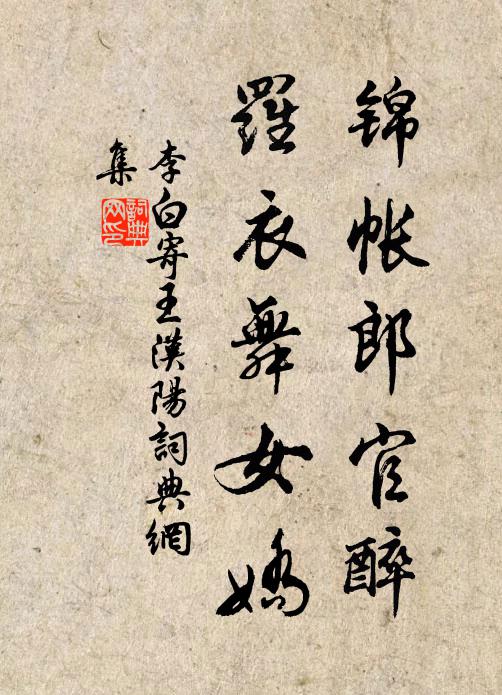 锦帐郎官醉
羅衣舞女嬌
李白寄王漢陽詞典網
集
詞典
网印